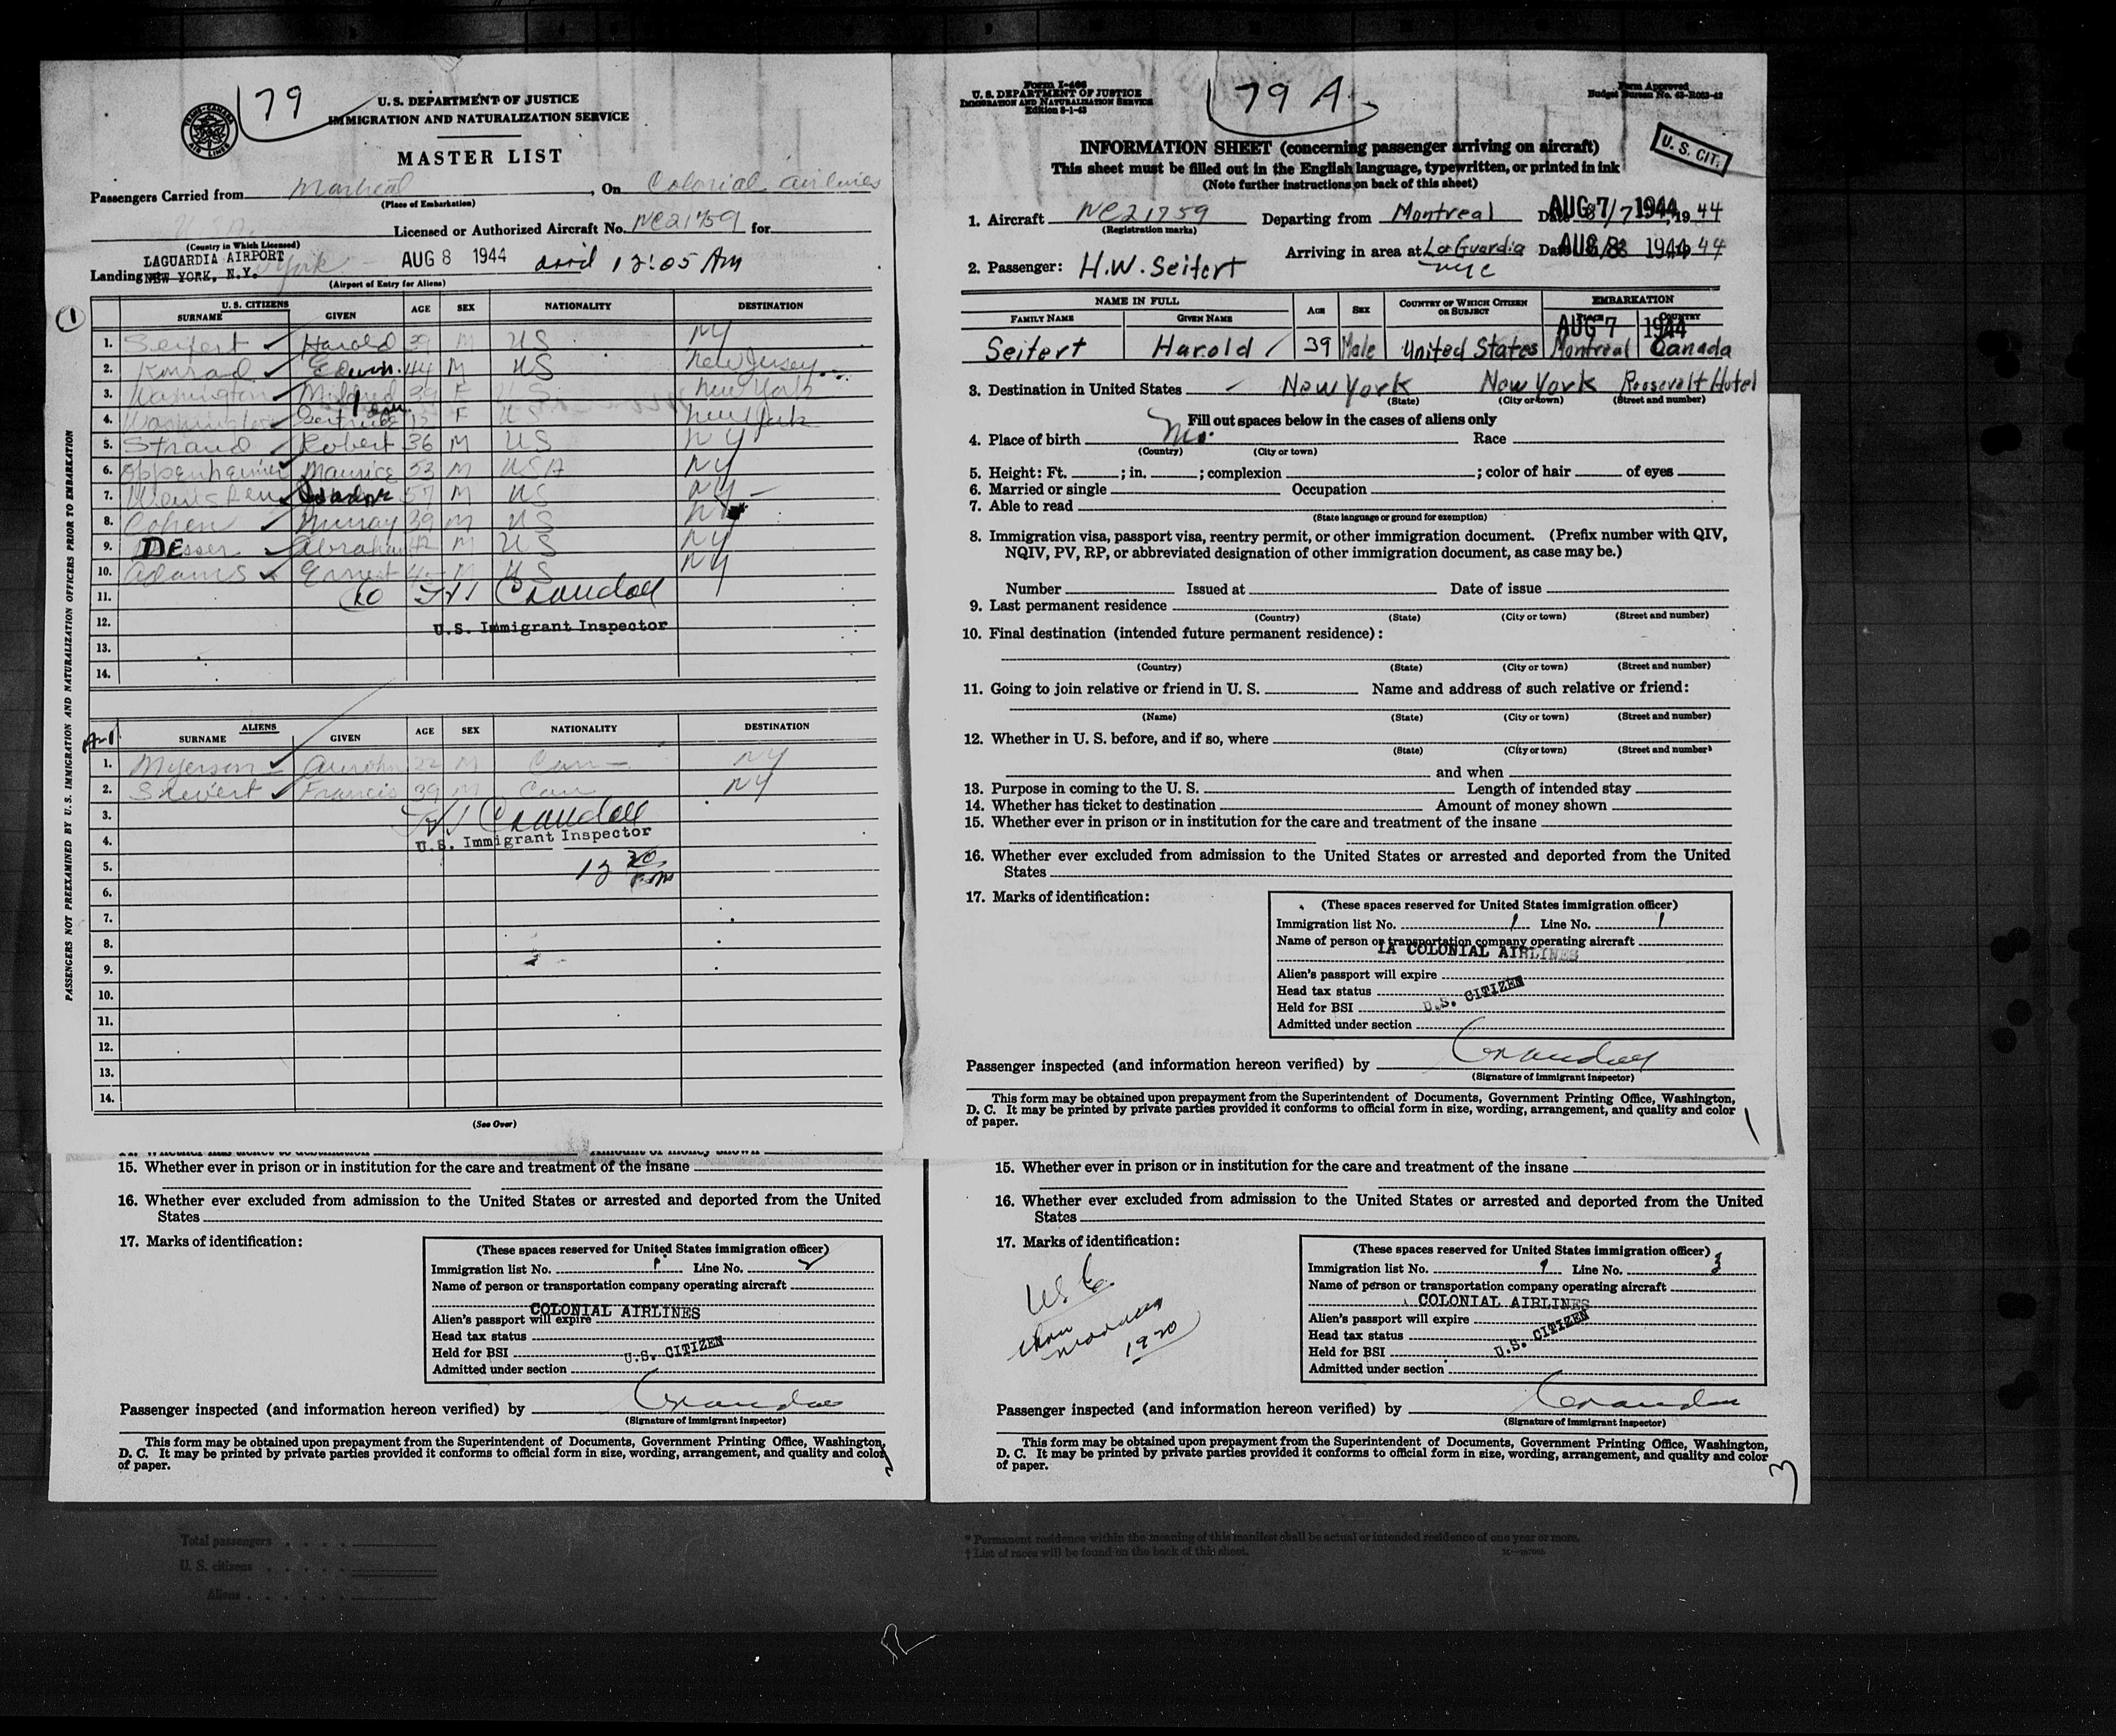 79
TRANS-CANADA AIR LINES
U. S. DEPARTMENT OF JUSTICE
IMMIGRATION AND NATURALIZATION SERVICE
MASTER LIST
Passengers Carried from Montreal, On Colonial Airlines
(Place of Embarkation)
Licensed or Authorized Aircraft No. NC21759 for
(Country in Which Licensed)
LAGUARDIA AIRPORT
Landing NEW YORK, N.Y. York AUG 8 1944 arrd 12:05 AM
(Airport of Entry for Aliens)
PASSENGERS NOT PREEXAMINED BY U.S. IMMIGRATION AND NATURALIZATION OFFICERS PRIOR TO EMBARKATION
1
U. S. CITIZENS
SURNAME GIVEN AGE SEX NATIONALITY DESTINATION
1. Seifert Harold 39 M US NY
2. Konrad Edwin 44 M US New Jersey
3. Washington Mildred 39 F US New York
4. Washington Gertrude F US New York
5. Strand Robert 36 M US NY
6. Oppenheimer Maurice 53 M USA NY
7. 57 M US NY
8. Cohen Murray 39 M US NY
9. DEsser Abraham 42 M US NY
10. Adams Ernest 45 M US NY
11. 10 Crandall
12. U.S. Immigrant Inspector
13.
14.
ALIENS
SURNAME GIVEN AGE SEX NATIONALITY DESTINATION
1. Myerson 22 M Can NY
2. Francis 39 M Can NY
3. Crandall
4. U.S. Immigrant Inspector
5. 12 20
6.
7.
8.
9.
10.
11.
12.
13.
14.
(See Over)
Form I-466
U. S. DEPARTMENT OF JUSTICE
IMMIGRATION AND NATURALIZATION SERVICE
Edition 8-1-43
79 A.
Form Approved
Budget Bureau No. 43-R063-42
U. S. CIT.
INFORMATION SHEET (concerning passenger arriving on aircraft)
This sheet must be filled out in the English language, typewritten, or printed in ink
(Note further instructions on back of this sheet)
1. Aircraft NC21759 Departing from Montreal Date 8/7 AUG 7 1944, 1944
(Registration marks)
Arriving in area at LaGuardia NYC Date AUG 8 1944 1944
2. Passenger: H.W. Seifert
NAME IN FULL AGE SEX COUNTRY OF WHICH CITIZEN OR SUBJECT EMBARKATION
FAMILY NAME GIVEN NAME PLACE COUNTRY
AUG 7 1944
Seifert Harold 39 Male United States Montreal Canada
3. Destination in United States New York New York Roosevelt Hotel
(State) (City or town) (Street and number)
Fill out spaces below in the cases of aliens only
4. Place of birth Mo. Race
(Country) (City or town)
5. Height: Ft. ; in. ; complexion ; color of hair of eyes
6. Married or single Occupation
7. Able to read
(State language or ground for exemption)
8. Immigration visa, passport visa, reentry permit, or other immigration document. (Prefix number with QIV,
NQIV, PV, RP, or abbreviated designation of other immigration document, as case may be.)
Number Issued at Date of issue
9. Last permanent residence
(Country) (State) (City or town) (Street and number)
10. Final destination (intended future permanent residence):
(Country) (State) (City or town) (Street and number)
11. Going to join relative or friend in U. S. Name and address of such relative or friend:
(Name) (State) (City or town) (Street and number)
12. Whether in U. S. before, and if so, where
(State) (City or town) (Street and number)
and when
13. Purpose in coming to the U. S. Length of intended stay
14. Whether has ticket to destination Amount of money shown
15. Whether ever in prison or in institution for the care and treatment of the insane
16. Whether ever excluded from admission to the United States or arrested and deported from the United
States
17. Marks of identification:
(These spaces reserved for United States immigration officer)
Immigration list No. 1 Line No. 1
Name of person or transportation company operating aircraft
COLONIAL AIRLINES
Alien's passport will expire
Head tax status
Held for BSI U.S. CITIZEN
Admitted under section
Passenger inspected (and information hereon verified) by Crandall
(Signature of immigrant inspector)
This form may be obtained upon prepayment from the Superintendent of Documents, Government Printing Office, Washington,
D. C. It may be printed by private parties provided it conforms to official form in size, wording, arrangement, and quality and color
of paper.
1
14. Whether has ticket to destination Amount of money shown
15. Whether ever in prison or in institution for the care and treatment of the insane
16. Whether ever excluded from admission to the United States or arrested and deported from the United
States
17. Marks of identification:
(These spaces reserved for United States immigration officer)
Immigration list No. 1 Line No. 2
Name of person or transportation company operating aircraft
COLONIAL AIRLINES
Alien's passport will expire
Head tax status
Held for BSI U.S. CITIZEN
Admitted under section
Passenger inspected (and information hereon verified) by Crandall
(Signature of immigrant inspector)
This form may be obtained upon prepayment from the Superintendent of Documents, Government Printing Office, Washington,
D. C. It may be printed by private parties provided it conforms to official form in size, wording, arrangement, and quality and color
of paper.
2
15. Whether ever in prison or in institution for the care and treatment of the insane
16. Whether ever excluded from admission to the United States or arrested and deported from the United
States
17. Marks of identification:
1920
(These spaces reserved for United States immigration officer)
Immigration list No. 1 Line No. 3
Name of person or transportation company operating aircraft
COLONIAL AIRLINES
Alien's passport will expire
Head tax status
Held for BSI U.S. CITIZEN
Admitted under section
Passenger inspected (and information hereon verified) by Crandall
(Signature of immigrant inspector)
This form may be obtained upon prepayment from the Superintendent of Documents, Government Printing Office, Washington,
D. C. It may be printed by private parties provided it conforms to official form in size, wording, arrangement, and quality and color
of paper.
3
Total passengers
U. S. citizens
Aliens
* Permanent residence within the meaning of this manifest shall be actual or intended residence of one year or more.
† List of races will be found on the back of this sheet.